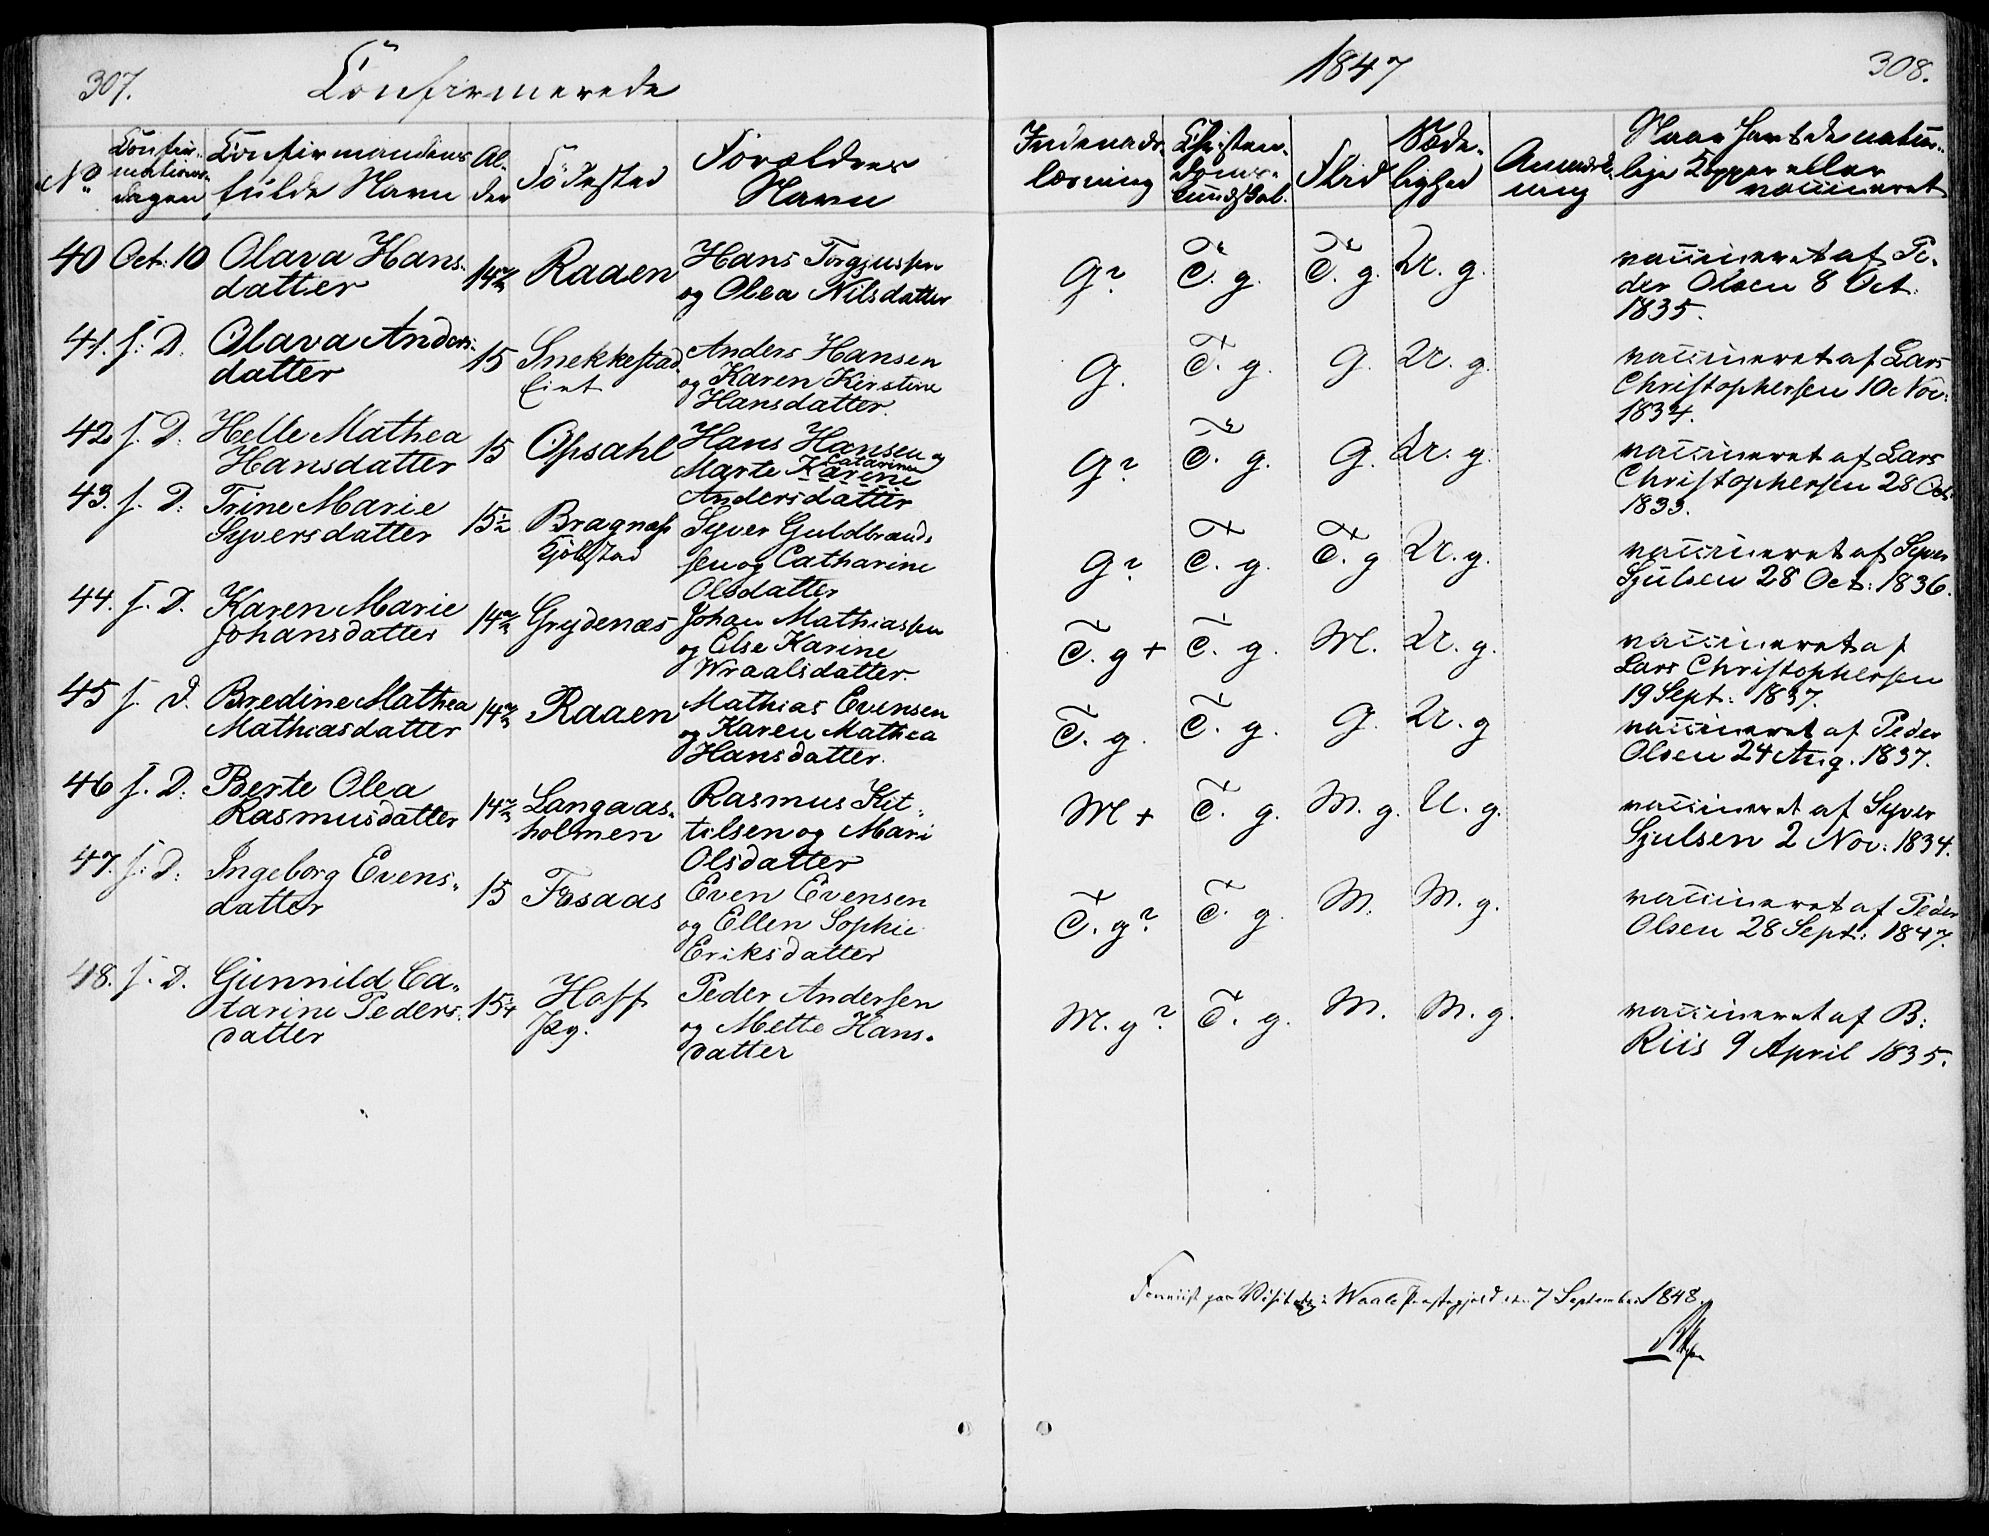 307.
Confirmerede
1847
308.
No
Confir-
mations-
dagen
Confirmandens
fulde Navn
Al-
der
Födested
Forældres
Navn
Indenads-
læsning
Christen-
doms-
kundskab.
Flid
Sæde-
lighed
Anmærk-
ning
Naar havt de natur-
lige Kopper eller
vaccineret
40 Oct: 10 Olava Hans-
datter
Raaen
Hans Torgjussen
og Olea Nilsdatter
G? T. g. T. g. U. g.
vaccineret af Pe-
der Olsen 8 Oct:
1835.
41. f. D. Olava Anders-
datter
15 Snekkestad
Eiet
Anders Hansen
og Karen Kirstine
Hansdatter.
G. T. g. G. U. g.
vaccineret af Lars
Christophersen 10 Nov:
1834.
42. f. D. Helle Mathea
Hansdatter
15 Opsahl
Hans Hansen og
Catarine
Marte Karene
Andersdatter
G? T. g. G. U. g.
vaccineret af Lars
Christophersen 28 Oct:
1833.
43. f. D. Trine Marie
Syversdatter
15½ Bragnæs
Kjölstad
Syver Guldbrand-
sen og Catharine
Olsdatter
G? T. g. T. g U. g.
vaccineret af Syver
Sjulsen 28 Oct: 1836.
44. f. D. Karen Marie
Johansdatter
Grydenæs
Johan Mathiassen
og Else Karine
Wraalsdatter.
T. g + T. g. M. U. g.
vaccineret af
Lars Christophersen
19 Sept: 1837.
45 f. D. Bredine Mathea
Mathiasdatter
Raaen
Mathias Evensen
og Karen Mathea
Hansdatter.
T. g. T. g. G. U. g
vaccineret af Peder
Olsen 24 Aug. 1837.
46 f. D. Berte Olea
Rasmusdatter
Langaas-
holmen
Rasmus Kit-
tilsen og Mari
Olsdatter
M + T. g. M. g. U. g.
vaccineret af Syver
Sjulsen 2 Nov: 1834.
47. f. D. Ingeborg Evens-
datter
15 Fosaas
Even Evensen
og Ellen Sophie
Eriksdatter
T. g? T. g. M. M. g.
vaccineret af Peder
Olsen 28 Sept: 1847.
48. f. D. Gunnild Ca-
tarine Peders-
datter
15¼ Hoff
Pg.
Peder Andersen
og Mette Hans-
datter
M. g? T. g. M. M. g.
vaccineret af B:
Riis 9 April 1835.
Foreviist paa Visitats i Waale Præstegjeld den 7 September 1848.